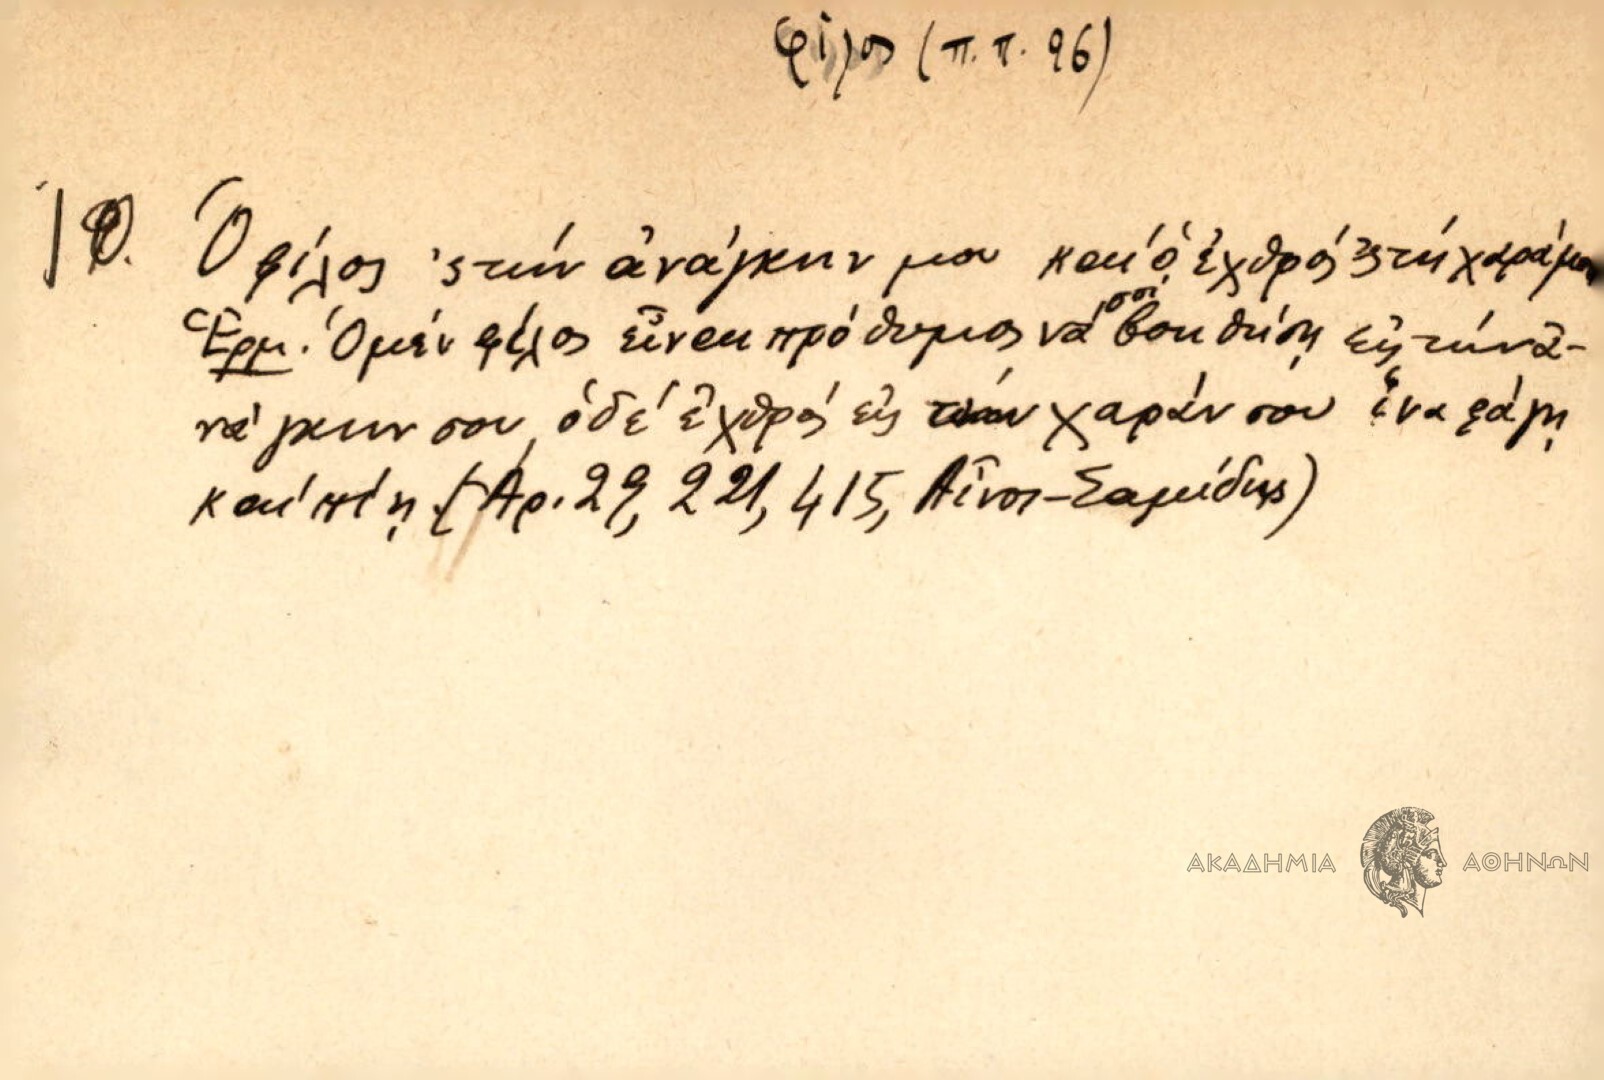 φίλος (π.π. 96)
10. Ὁ φίλος 'ς τὴν ἀνάγκην μου καὶ ὁ ἐχθρός 'ς τὴ χαρά μου
Ἑρμ. Ὁ μὲν φίλος εἶναι πρόθυμος νὰ σοὶ βοηθήσῃ εἰς τὴν ἀ-
νάγκην σου, ὁ δὲ ἐχθρὸς εἰς τὴν χαράν σου ἵνα φάγῃ
καὶ πίῃ. (Ἀρ. 29, 221, 415, Αἶνος - Σαμίδης)
ΑΚΑΔΗΜΙΑ ΑΘΗΝΩΝ